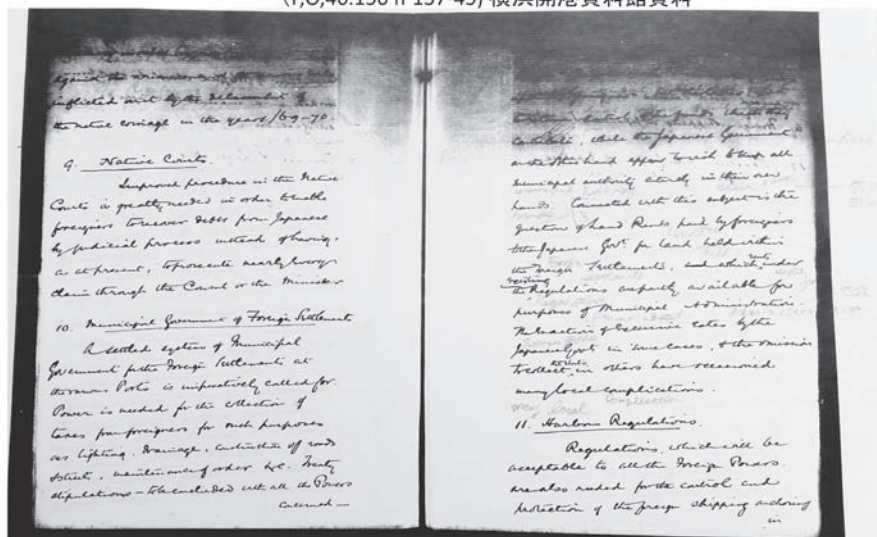 (F,O,46.136 n 137-45) 横浜開港資料館資料
against the
inflicted by the debasement of
the native coinage in the years /69-70
9. Native Courts.
Improved procedure in the Native
Courts is greatly needed in order to enable
foreigners to recover debts from Japanese
by judicial process instead of having,
as at present, to prosecute nearly every
claim through the Consul or the Minister
10. Municipal Government of Foreign Settlements
A settled system of Municipal
Government for the Foreign Settlements at
the various Ports is imperatively called for.
Power is needed for the collection of
taxes from foreigners for such purposes
as lighting, drainage, construction of roads
& streets, maintenance of order &c. Treaty
stipulations – to be concluded with all the Powers
concerned —
control of the funds which they
contribute, while the Japanese Government
on the other hand appear to wish to keep all
municipal authority entirely in their own
hands. Connected with this subject is the
question of Land Rents paid by foreigners
to the Japanese Govt. for land held within
the Foreign Settlements, and which rents under
existing
the Regulations are partly available for
purposes of Municipal Administration.
The exaction of excessive rates by the
Japanese Govt. in some cases, & the omission
to collect the rents in others have occasioned
many local complications.
may local complication
11. Harbour Regulations.
Regulations, which will be
acceptable to all the Foreign Powers
are also needed for the control and
protection of the foreign shipping anchoring
in